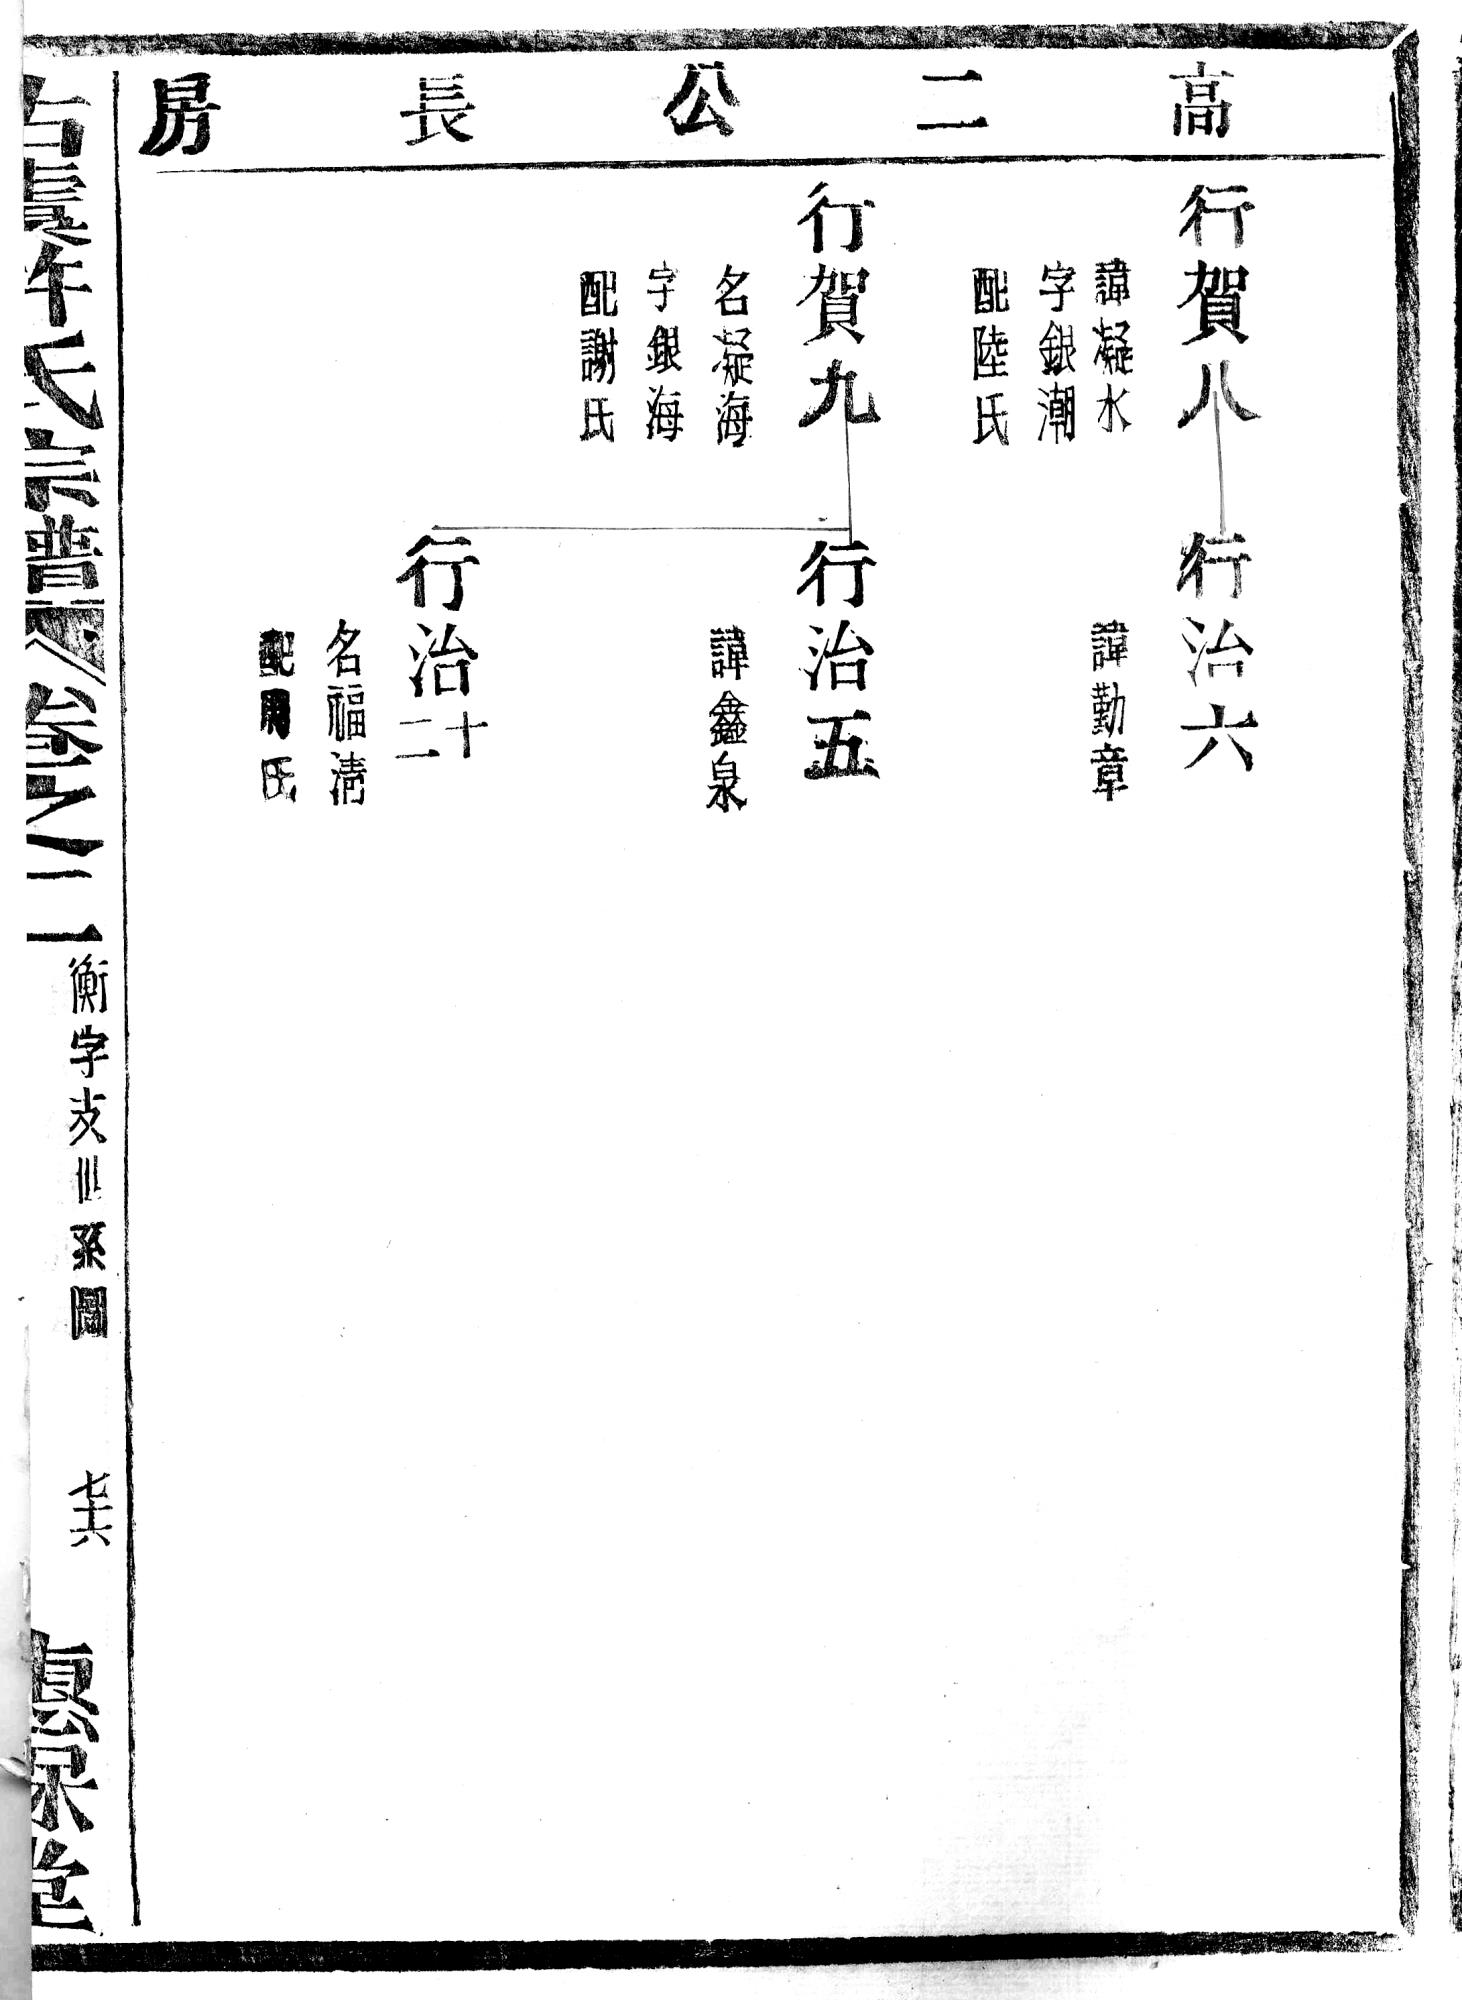 高二公長房
行賀八
諱凝水
字銀潮
配陸氏
行治六
諱勤章
行賀九
名凝海
字銀海
配謝氏
行治五
諱鑫泉
行治十二
名福淸
配周氏
古虞許氏宗譜
卷之二
衡字支世系圖
七十六
惪保堂